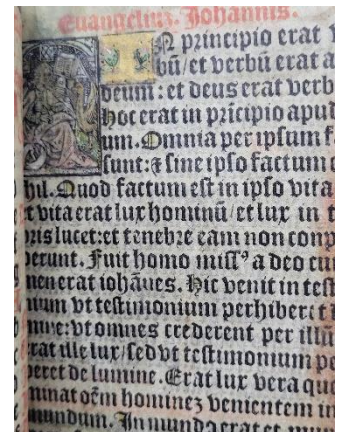 Euangeliū. Johannis.
N principio erat v
bū/et verbū erat a
deum: et deus erat verb
hoc erat in prīcipio apud
um. Omnia per ipsum f
sunt: ⁊ sine ipso factum e
hil. Quod factum est in ipso vita
t vita erat lux hominū/et lux in t
bris lucet: et tenebre eam non conp
erunt. Fuit homo missꝰ a deo cui
nen erat iohānes. Hic venit in test
nium vt testimonium perhiberet
mine: vt omnes crederent per illū
rat ille lux/sed vt testimonium pe
beret de lumine. Erat lux vera que
minat oēm hominez venientem in
mundum. In mundo erat et mun